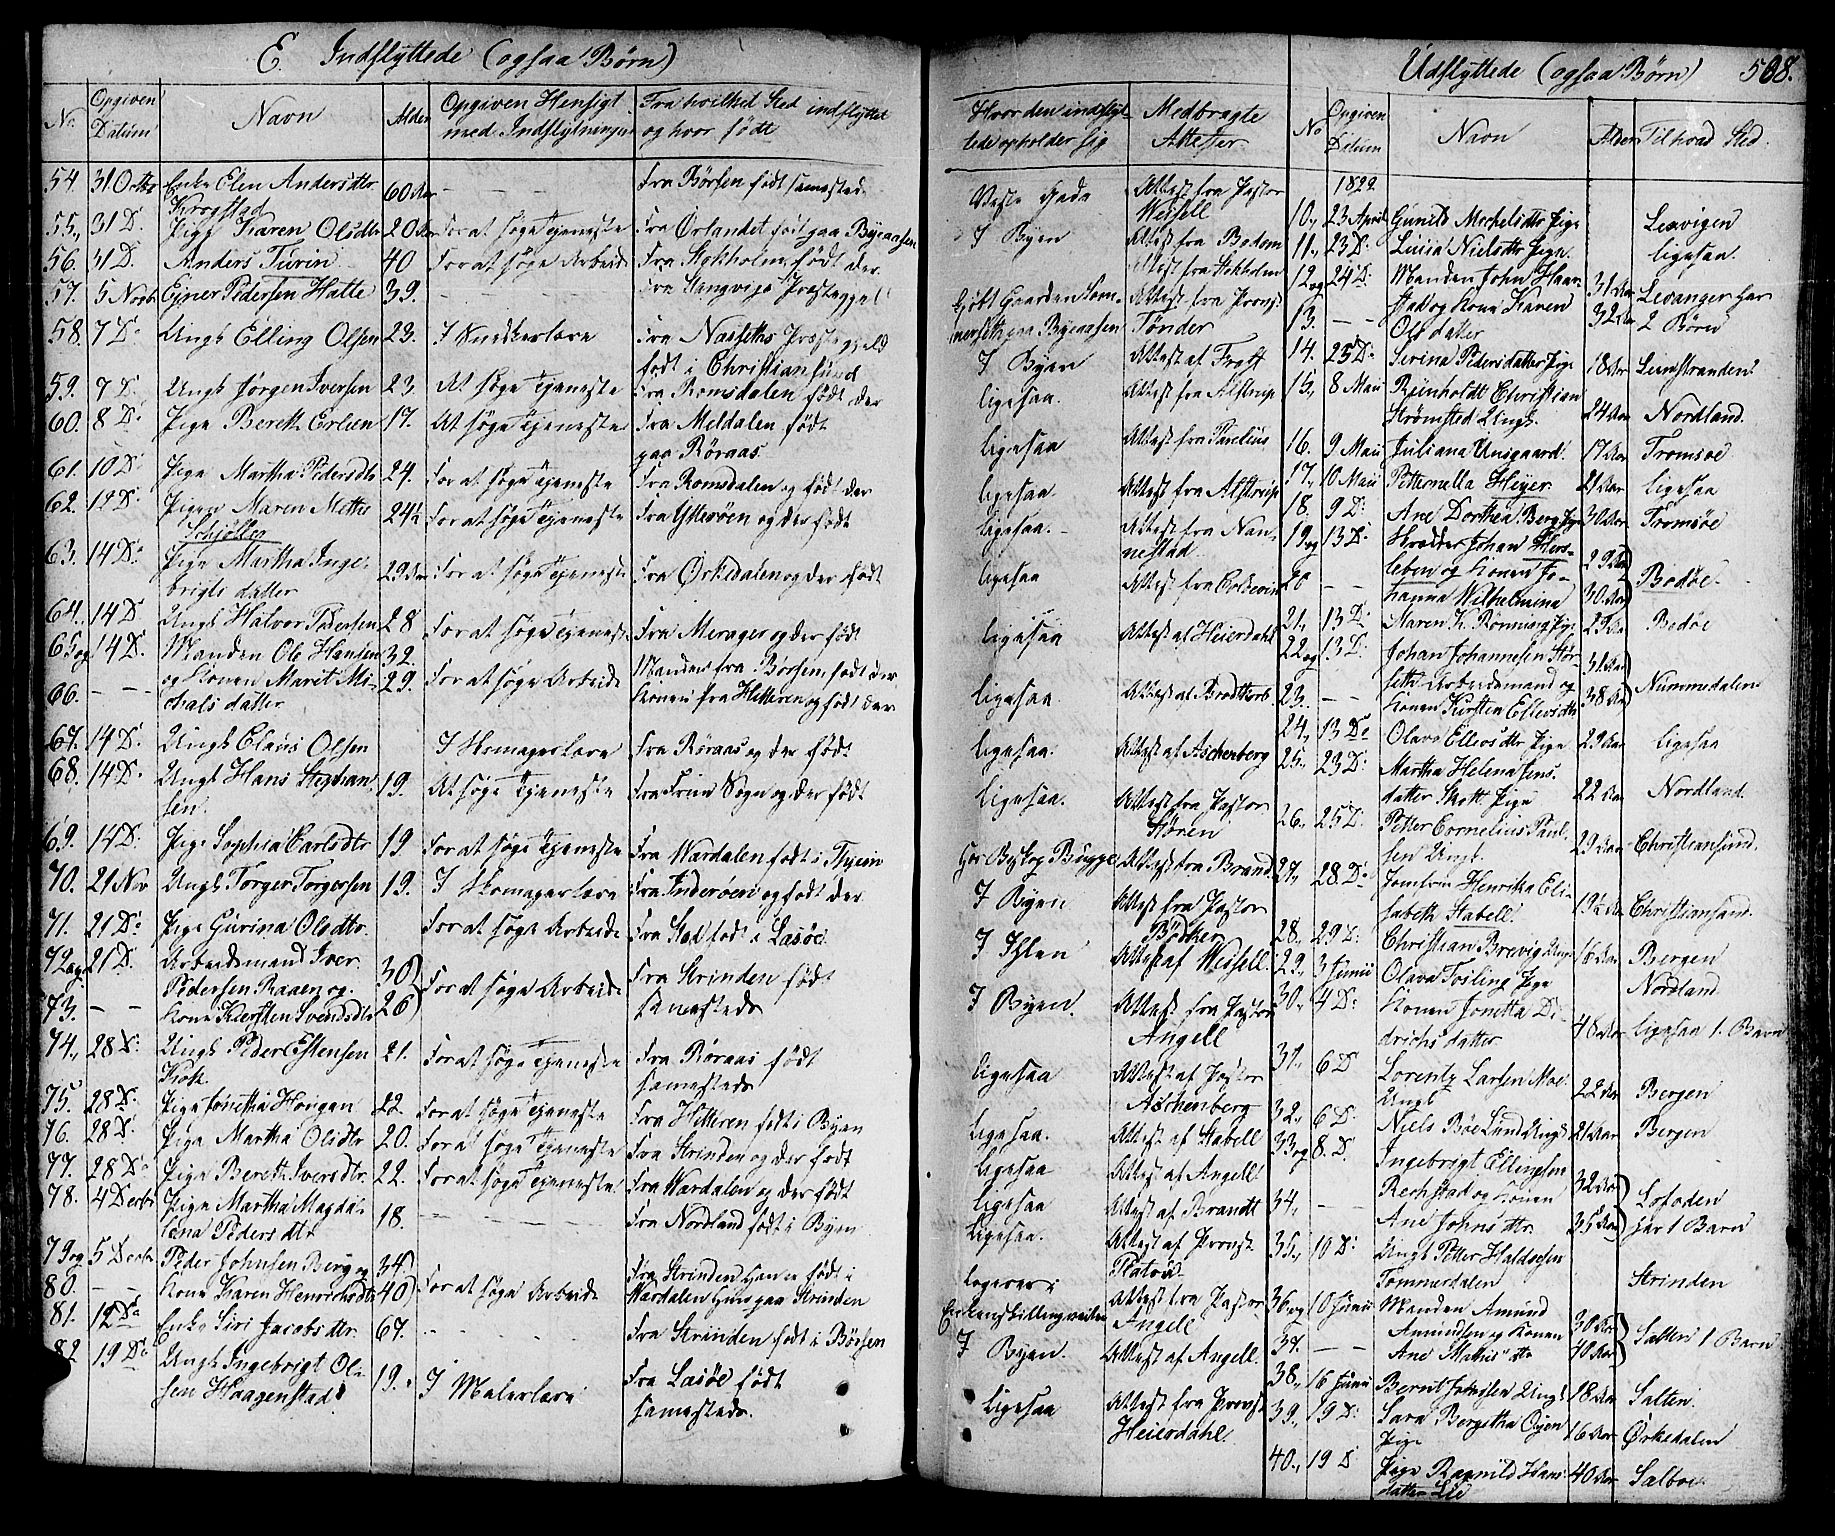 E. Indflyttede (ogsaa Børn)
No. Opgiven Datum Navn Alder Opgiven Hensigt med Indflytningen Fra hvilket Sted indflyttet og hvor født
54. 31 Octbr Enke Elen Andersdtr. Krogstad 60 Aar — Fra Børsen født samesteds
55., 31 D. Pige Karen Olsdtr 20 Aar For at søge Tjeneste Fra Ørlandet født paa Byeaasen
56. 31 D. Anders Turin 40 For at søge Arbeide Fra Stokholm født der.
57. 5 Novb. Ejner Pedersen Hatte 39. — Fra Stangvigs Præstegjel
58. 7 D. Ungk Elling Olsen 23. I Snedkerlære Fra Næssets Præstegjeld
født i Christiansund
59. 7 D. Ungk Jørgen Iversen 23 At søge Tjeneste Fra Romsdalen født der
60. 8 D. Pige Berett Erlien 17. At søge Tjeneste Fra Meldalen født
paa Røraas
61. 10 D. Pige Martha Pedersdtr 24. For at søge Tjeneste Fra Romsdalen og født der
62. 12 D. Pigen Maren Mette Schjølles 24½ For at søge Tjeneste Fra Ytterøen og der født
63. 14 D. Pige Martha Inge-
brigts datter 29 Aar For at søge Tjeneste Fra Ørkedalen og der født
64. 14 D. Ungk Halvor Pedersen 28 For at søge Tjeneste Fra Meragerogder født
65 og 14 D. Manden Ole Hansen 32. For at søge Arbeide Manden fra Børsen født der
66. — — og Konen Marit Mi-
chals datter 29. Konen fra Hitteren og født der
67. 14 D. Ungk Claus Olsen I Skomagerlære Fra Røraas og der født
68. 14 D. Ungk Hans Stephan
sen. 19. At søge Tjeneste Fra Sogn og der født
69. 14 D. Pige Sophia Carlsdtr 19 For at søge Tjeneste Fra Wærdalen født i
70. 21 Nov Ungk Torger Torgersen 19. I Skomagerlære Fra Inderøen og født der
71. 21 D. Pige Gurina Olsdtr. For at søge Arbeide Fra Stod født i Lasøe
72 og 21 D. Arbeidsmand Iver
Pedersen Raaen og 30 For at søge Arbeide Fra Strinden født
73. — — Kone Kiersten Svendsdtr 26 samesteds
74., 28 D. Ungk Peder Estensen
Kok 21. For at søge Tjeneste Fra Røraas født
samesteds
75. 28 D. Pige Jonetta Hougan 22 For at søge Tjeneste Fra Hitteren født i Byen
76. 28 D. Pige Martha Olsdtr 20. For at søge Tjeneste Fra Strinden og der født
77. 28 D. Pige Berett Iversdtr. 22. For at søge Tjeneste Fra Wærdalen og der født
78. 4 Decbr Pige Martha Magda-
lena Pedersdtr 18. — Fra Nordland født i Byen
79 og 5 Decbr Peder Johnsen Berg og 34. For at søge Arbeide Fra Strinden Han er født i
80. — — Kone Karen Henrichsdtr 40 Wærdalen Hun paa Strinden
81. 12 D. Enke Siri Jacobsdtr. 67. — Fra Strinden født i Børsen
82 19 D. Ungk Ingebrigt Ol-
sen Haagenstad 19. I Malerlære Fra Lasøe født
samesteds.
Hvor den indflyt-
tede opholder sig Medbragte Attester
Attest fra Pastor
Weisell
I Byen Attest fra Bodom
Attest fra Stokholm
Gjest Gaarden Attest fra Provst
Tønder
I Byen Attest af
ligesaa. Attest fra Alstrup
ligesaa
ligesaa. Attest fra Alstrup
ligesaa. Attest fra Nan-
nestad
ligesaa Attest fra
ligesaa Attest af Heierdahl
ligesaa. Attest af
ligesaa. Attest af Aschenberg
ligesaa. Attest fra Pastor
Støren
Hos Bylog Bugge Attest fra Brand
I Byen Attest fra Pastor
I Ihlen Attest af Weisell
I Byen. Attest fra Pastor
Angell
ligesaa Attest af Pastor
Aschenberg
ligesaa. Attest af Stabell
ligesaa Attest af Angell
ligesaa Attest af Brandt
ligesaa. Attest af Provst
logerer i Attest fra Pastor
Angell
I Byen. Attest af Angell.
ligesaa Attest fra Provst
Heierdahl.
Udflyttede (ogsaa Børn) 508.
No Opgiven Datum Navn Alder Til hvad Sted.
1829.
10., 23 April Gunild Mechelsdtr Pige Leervigen
11., 23 D. Luisa Nielsdtr Pige. ligesaa.
12 og 24 D. Manden John Haar-
stad og Kone Karen 31 Aar Levanger har
13. — — Olsdatter 32 Aar 2 Børn
14. 25 D. Serina Pedersdatter Pige 18 Aar
15., 8 Maii Reinholdt Christian
Strømsted Ungk. 24 Aar Nordland.
16. 9 Maii Juliana Unsgaard. 17 Aar Tromsøe
17., 10 Maii Petternella Heyer 21 Aar ligesaa
18. 9 D. Ane Dorthea Berg Pige 30 Aar Tromsøe
19 og 13 D. Skredder Johan Hers-
leben og Konen Jo- 29 Aar Bodøe.
20 — — hanna Wilhelmina 30 Aar
21, 13 D. Maren K. Rønning Pige 29 Aar Bodøe
22 og 13 D. Johan Johannesen Stør-
seth Arbeidsmand og 31 Aar Nummedalen
23. — — Konen Kirsten Ellevsdtr 38 Aar
24., 13 D. Olava Ellevsdtr Pige 29 Aar ligesaa
25., 23 D. Martha Helena Jens-
datter Skott Pige 22 Aar Nordland.
26., 25 D. Petter Cornelius Paul-
sen Ungk. 29 Aar Christiansund.
27., 28 D. Jomfru Henrika Eli-
sabeth Stabell. 19½ Aar Christiansand.
28., 29 D. Christian Brevig Ungk 16 Aar Bergen
29., 3 Junii Olava Tosling Pige Nordland
30., 4 D. Konen Jonetta Di-
drichsdatter 48 Aar ligesaa 1. Barn
31., 6 D Lorentz Larsen Moe
Ungk 22 Aar Bergen
32., 6 D. Niels Böe Lund Ungk 21 Aar Bergen
33 og 8. D. Ingebrigt Ellingsen
Rechstad og Konen 32 Aar Lofoden
34., — — Ane Johnsdtr. 35 Aar har 1 Barn
35., 10 D. Ungk Petter Haldorsen
Tommerdalen Strinden
36 og 10 Junii Manden Amund
Amundsen og Konen 30 Aar Salten 1 Barn
37. — — Ane Mathisdtr 40 Aar
38., 16 Junii Bernt Johnsen Ungk 18 Aar Salten
39., 19 D. Sara Bergitha Oyen
Pige 16 Aar Ørkedalen
40., 19 D Pige Ragnild Hans-
datter Lie 40 Aar Salboe